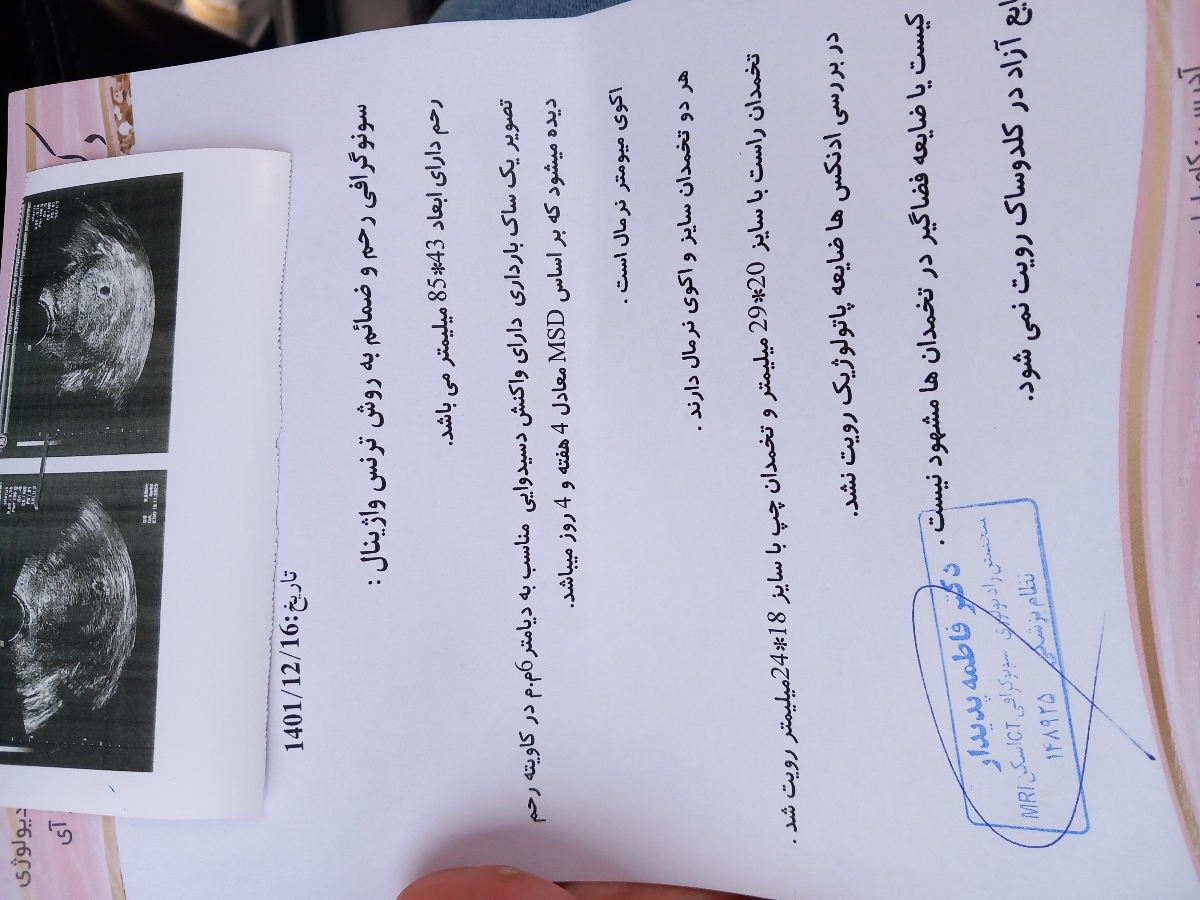 تاریخ:1401/12/16
سونوگرافی رحم و ضمائم به روش ترنس واژینال :
رحم دارای ابعاد 43*85 میلیمتر می باشد.
تصویر یک ساک بارداری دارای واکنش دسیدوایی مناسب به دیامتر 6م.م در کاویته رحم
دیده میشود که بر اساس MSD معادل 4 هفته و 4 روز میباشد.
اکوی میومتر نرمال است .
هر دو تخمدان سایز و اکوی نرمال دارند .
تخمدان راست با سایز 20*29 میلیمتر و تخمدان چپ با سایز 18*24میلیمتر رویت شد .
در بررسی ادنکس ها ضایعه پاتولوژیک رویت نشد.
کیست یا ضایعه فضاگیر در تخمدان ها مشهود نیست .
آزاد در کلدوساک رویت نمی شود.
دکتر فاطمه پدیدار
متخصص رادیولوژی سونوگرافی CTاسکن MRI
نظام پزشکی ۱۴۸۹۲۵
دیولوژی
آی